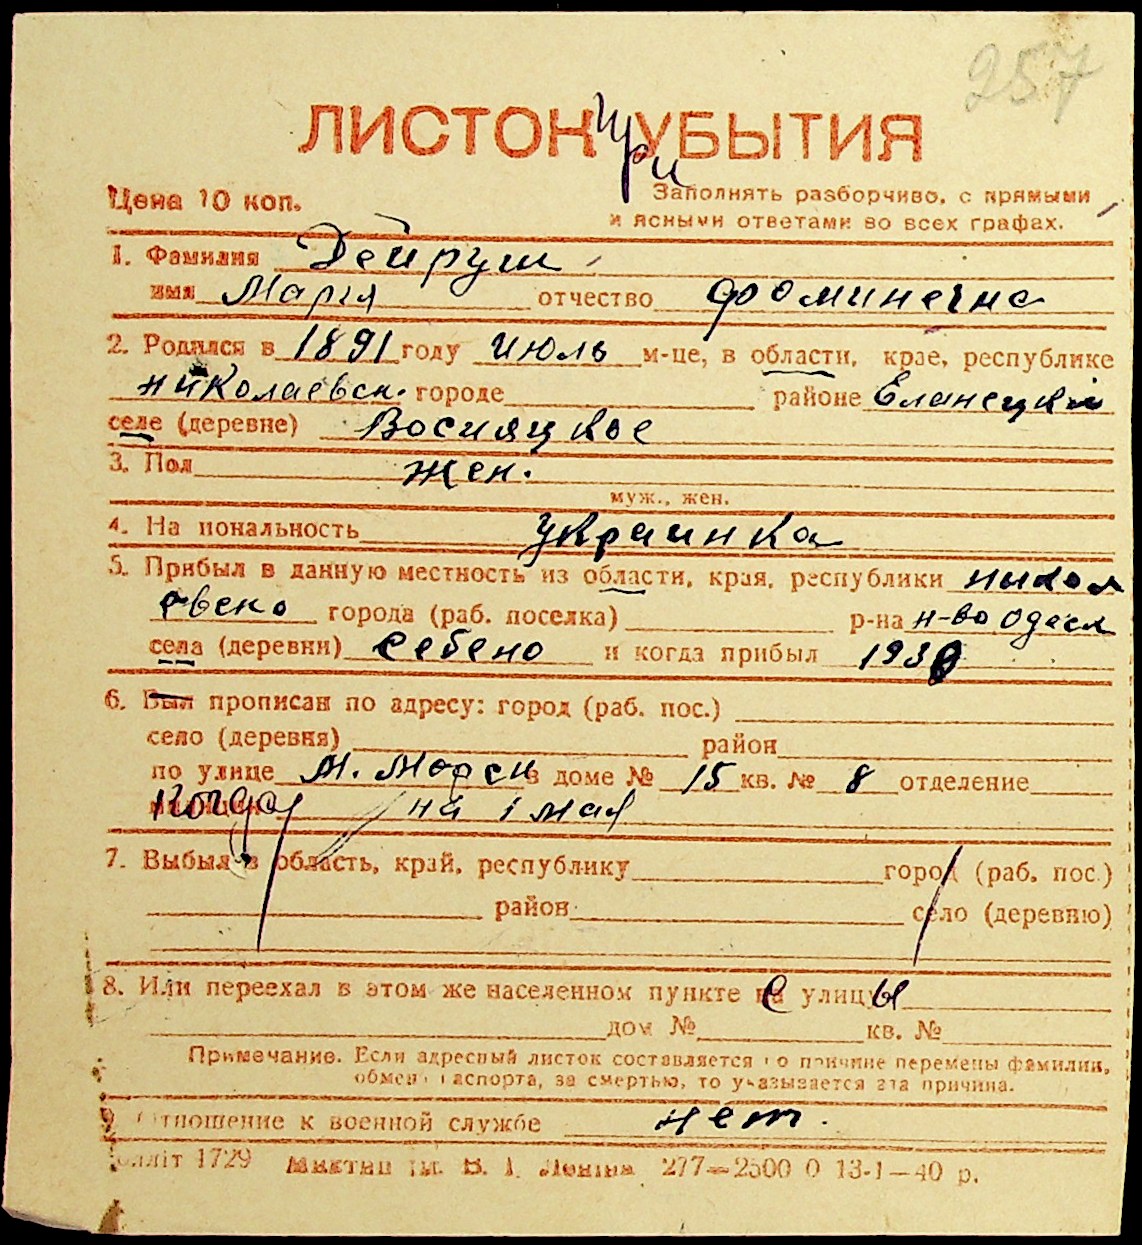 257
ЛИСТОК при УБЫТИЯ
Цена 10 коп.
Заполнять разборчиво, с прямыми
и ясными ответами во всех графах.
1. Фамилия Дейруш
имя Марія отчество Фоминечна
2. Родился в 1891 году июль м-це, в области, крае, республике
николаевск. городе районе Еланецкій
селе (деревне)
3. Пол жен.
муж., жен.
4. Национальность украинка
5. Прибыл в данную местность из области, края, республики никол
евско города (раб. поселка) р-на н-во одеск
села (деревни) себено и когда прибыл 193
6. Был прописан по адресу: город (раб. пос.)
село (деревня) район
по улице М. Морск в доме № 15 кв. № 8 отделение
милиции когда на 1 мая
7. Выбыл в область, край, республику город (раб. пос.)
район село (деревню)
8. Или переехал в этом же населенном пункте с улицы
дом № кв. №
Примечание. Если адресный листок составляется по причине перемены фамилии,
обмена паспорта, за смертью, то указывается эта причина.
9. Отношение к военной службе нет.
1729 ім. В. І. Леніна 277—2500 0 13-1—40 р.